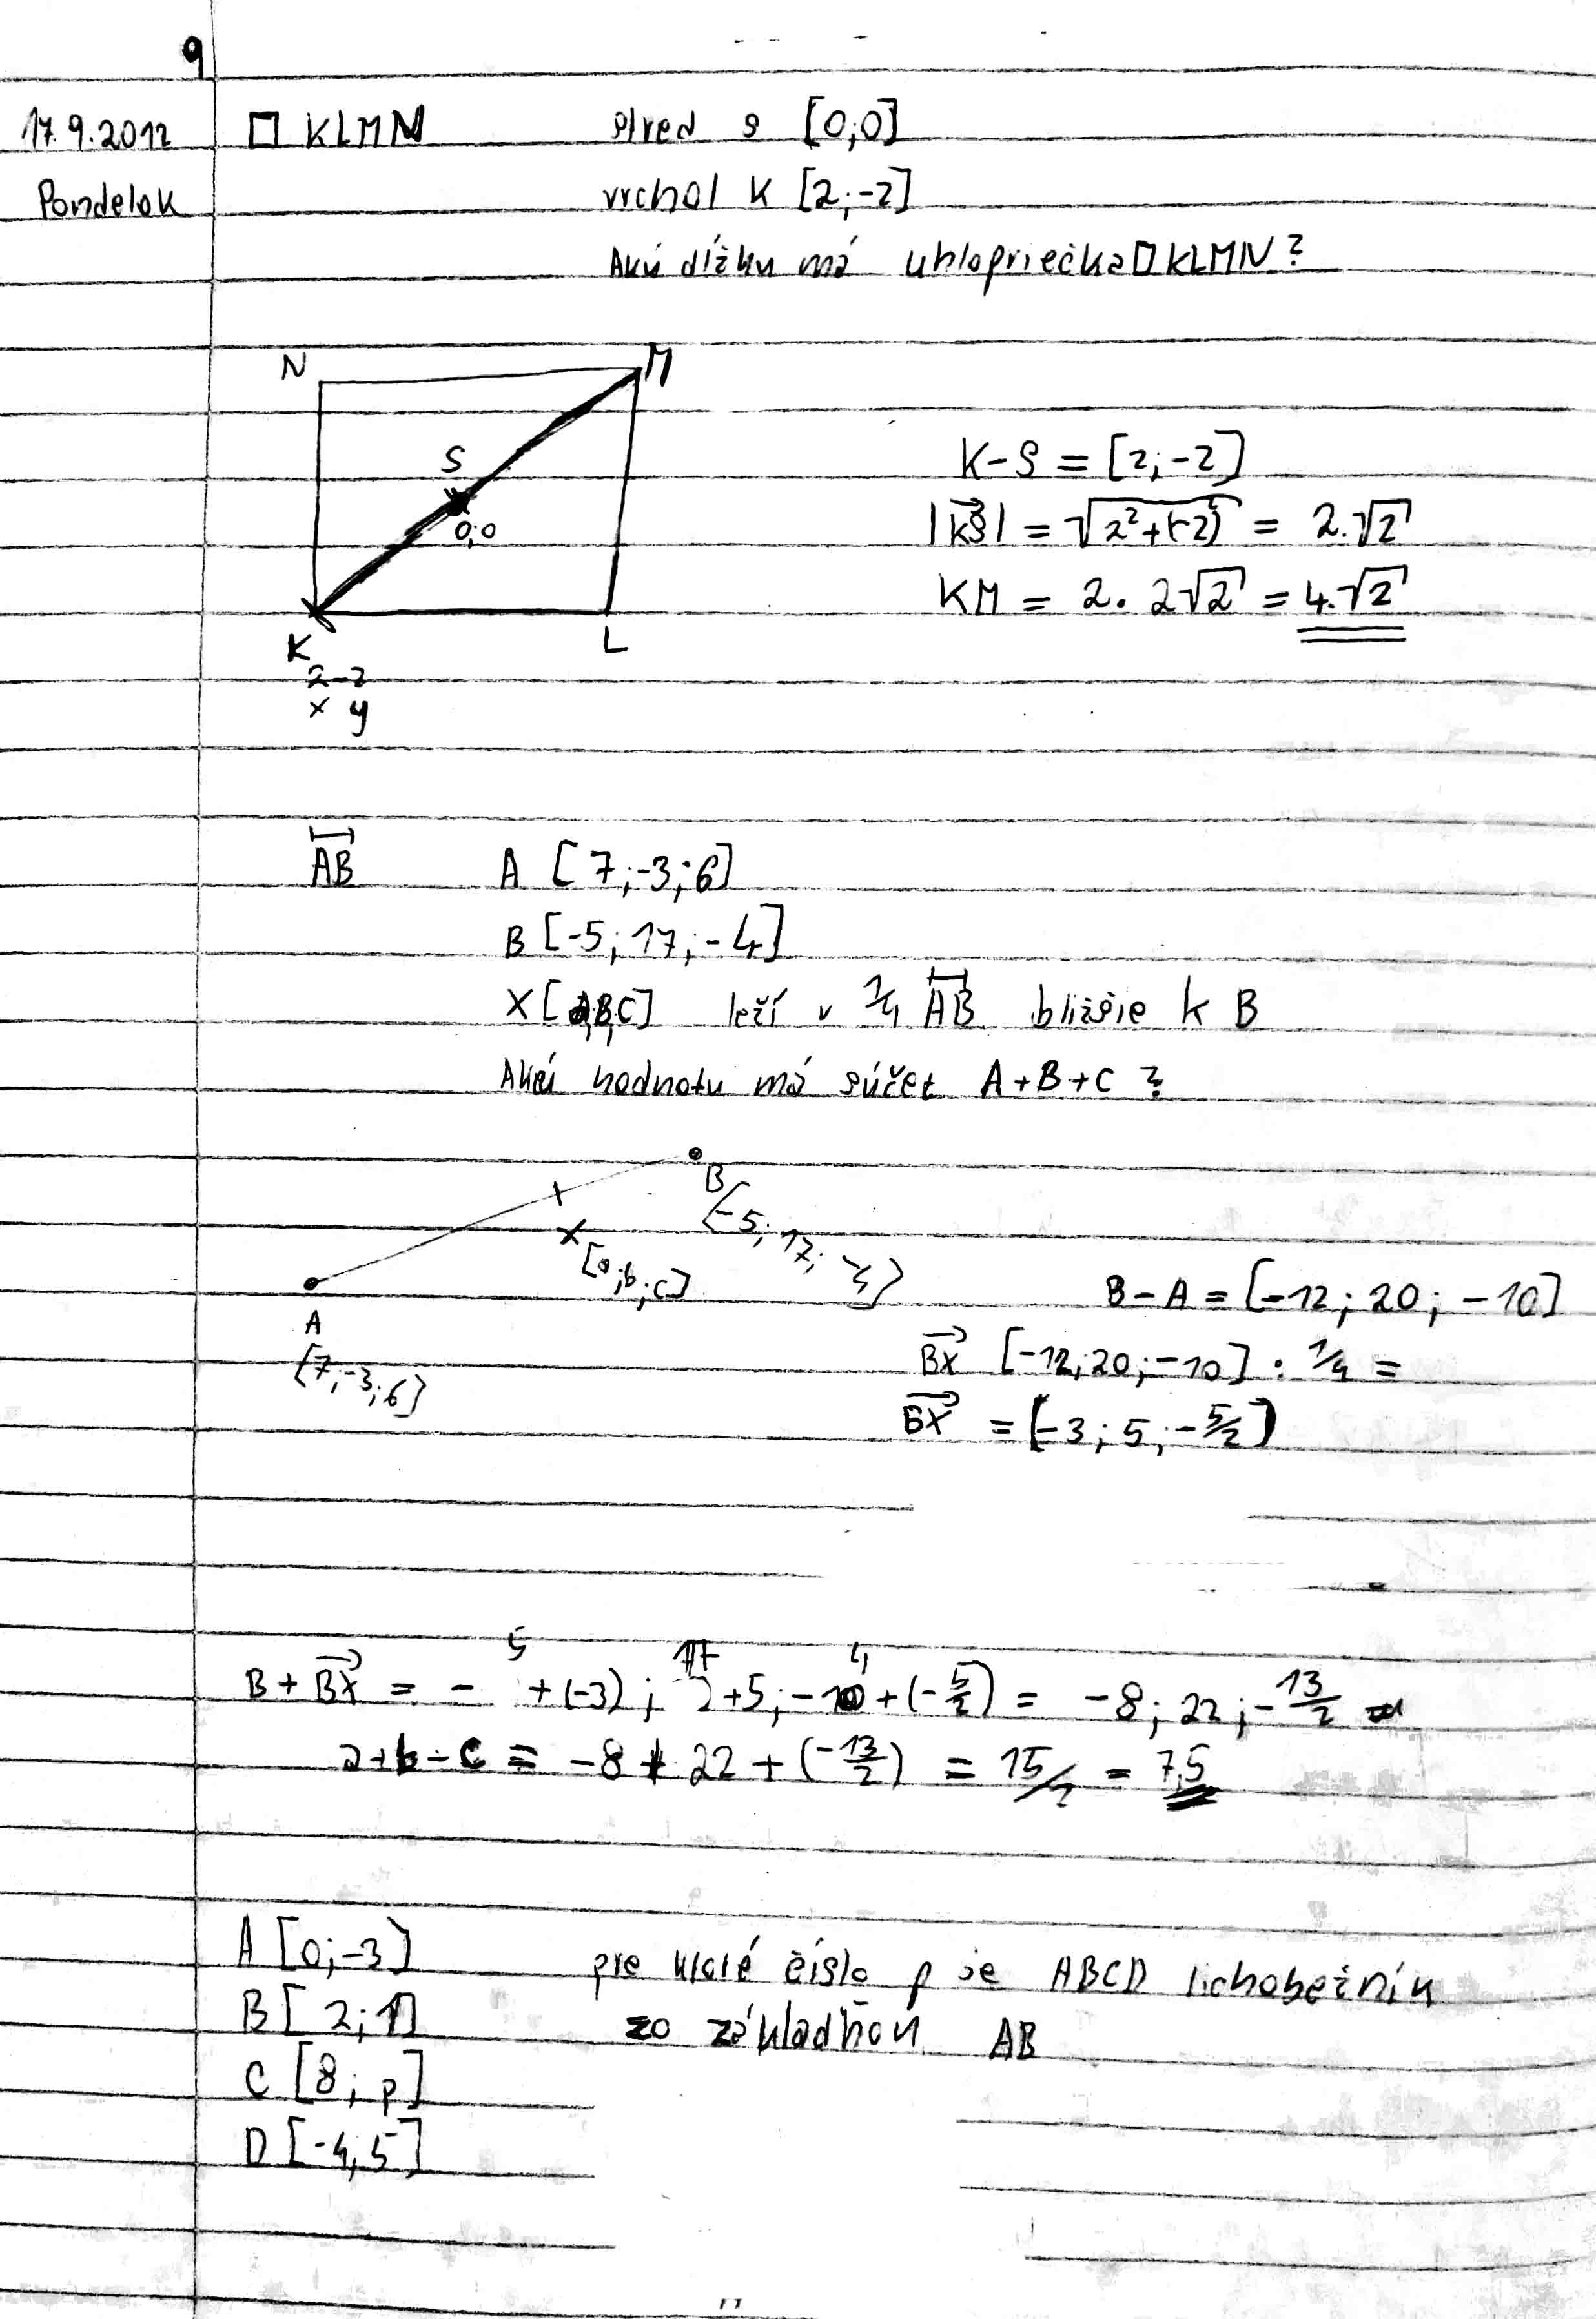 9
17.9.2012 □ KLMN stred S [0;0]
Pondelok vrchol K [2;-2]
Akú dĺžku má uhlopriečka □ KLMN?
N M
S
0;0
K L
2 -2
x y
K-S = [2;-2]
|KS| = √2²+(-2)² = 2.√2
KM = 2. 2√2 = 4.√2
AB A [7;-3;6]
B [-5;17;-4]
X [A,B,C] leží v 1/4 AB bližšie k B
Akú hodnotu má súčet A+B+C ?
B
[-5; 17; -4]
X
[a;b;c]
A
[7;-3;6]
B-A = [-12; 20; -10]
BX [-12;20;-10] : 1/4 =
BX = (-3; 5; -5/2)
B + BX = -5 + (-3); 17+5; -4 + (-5/2) = -8; 22; -13/2
a+b+c = -8 + 22 + (-13/2) = 15/2 = 7,5
A [0;-3]
B [2;1]
C [8; p]
D [-4,5]
pre ktoré číslo p je ABCD lichobežník
zo základňou AB